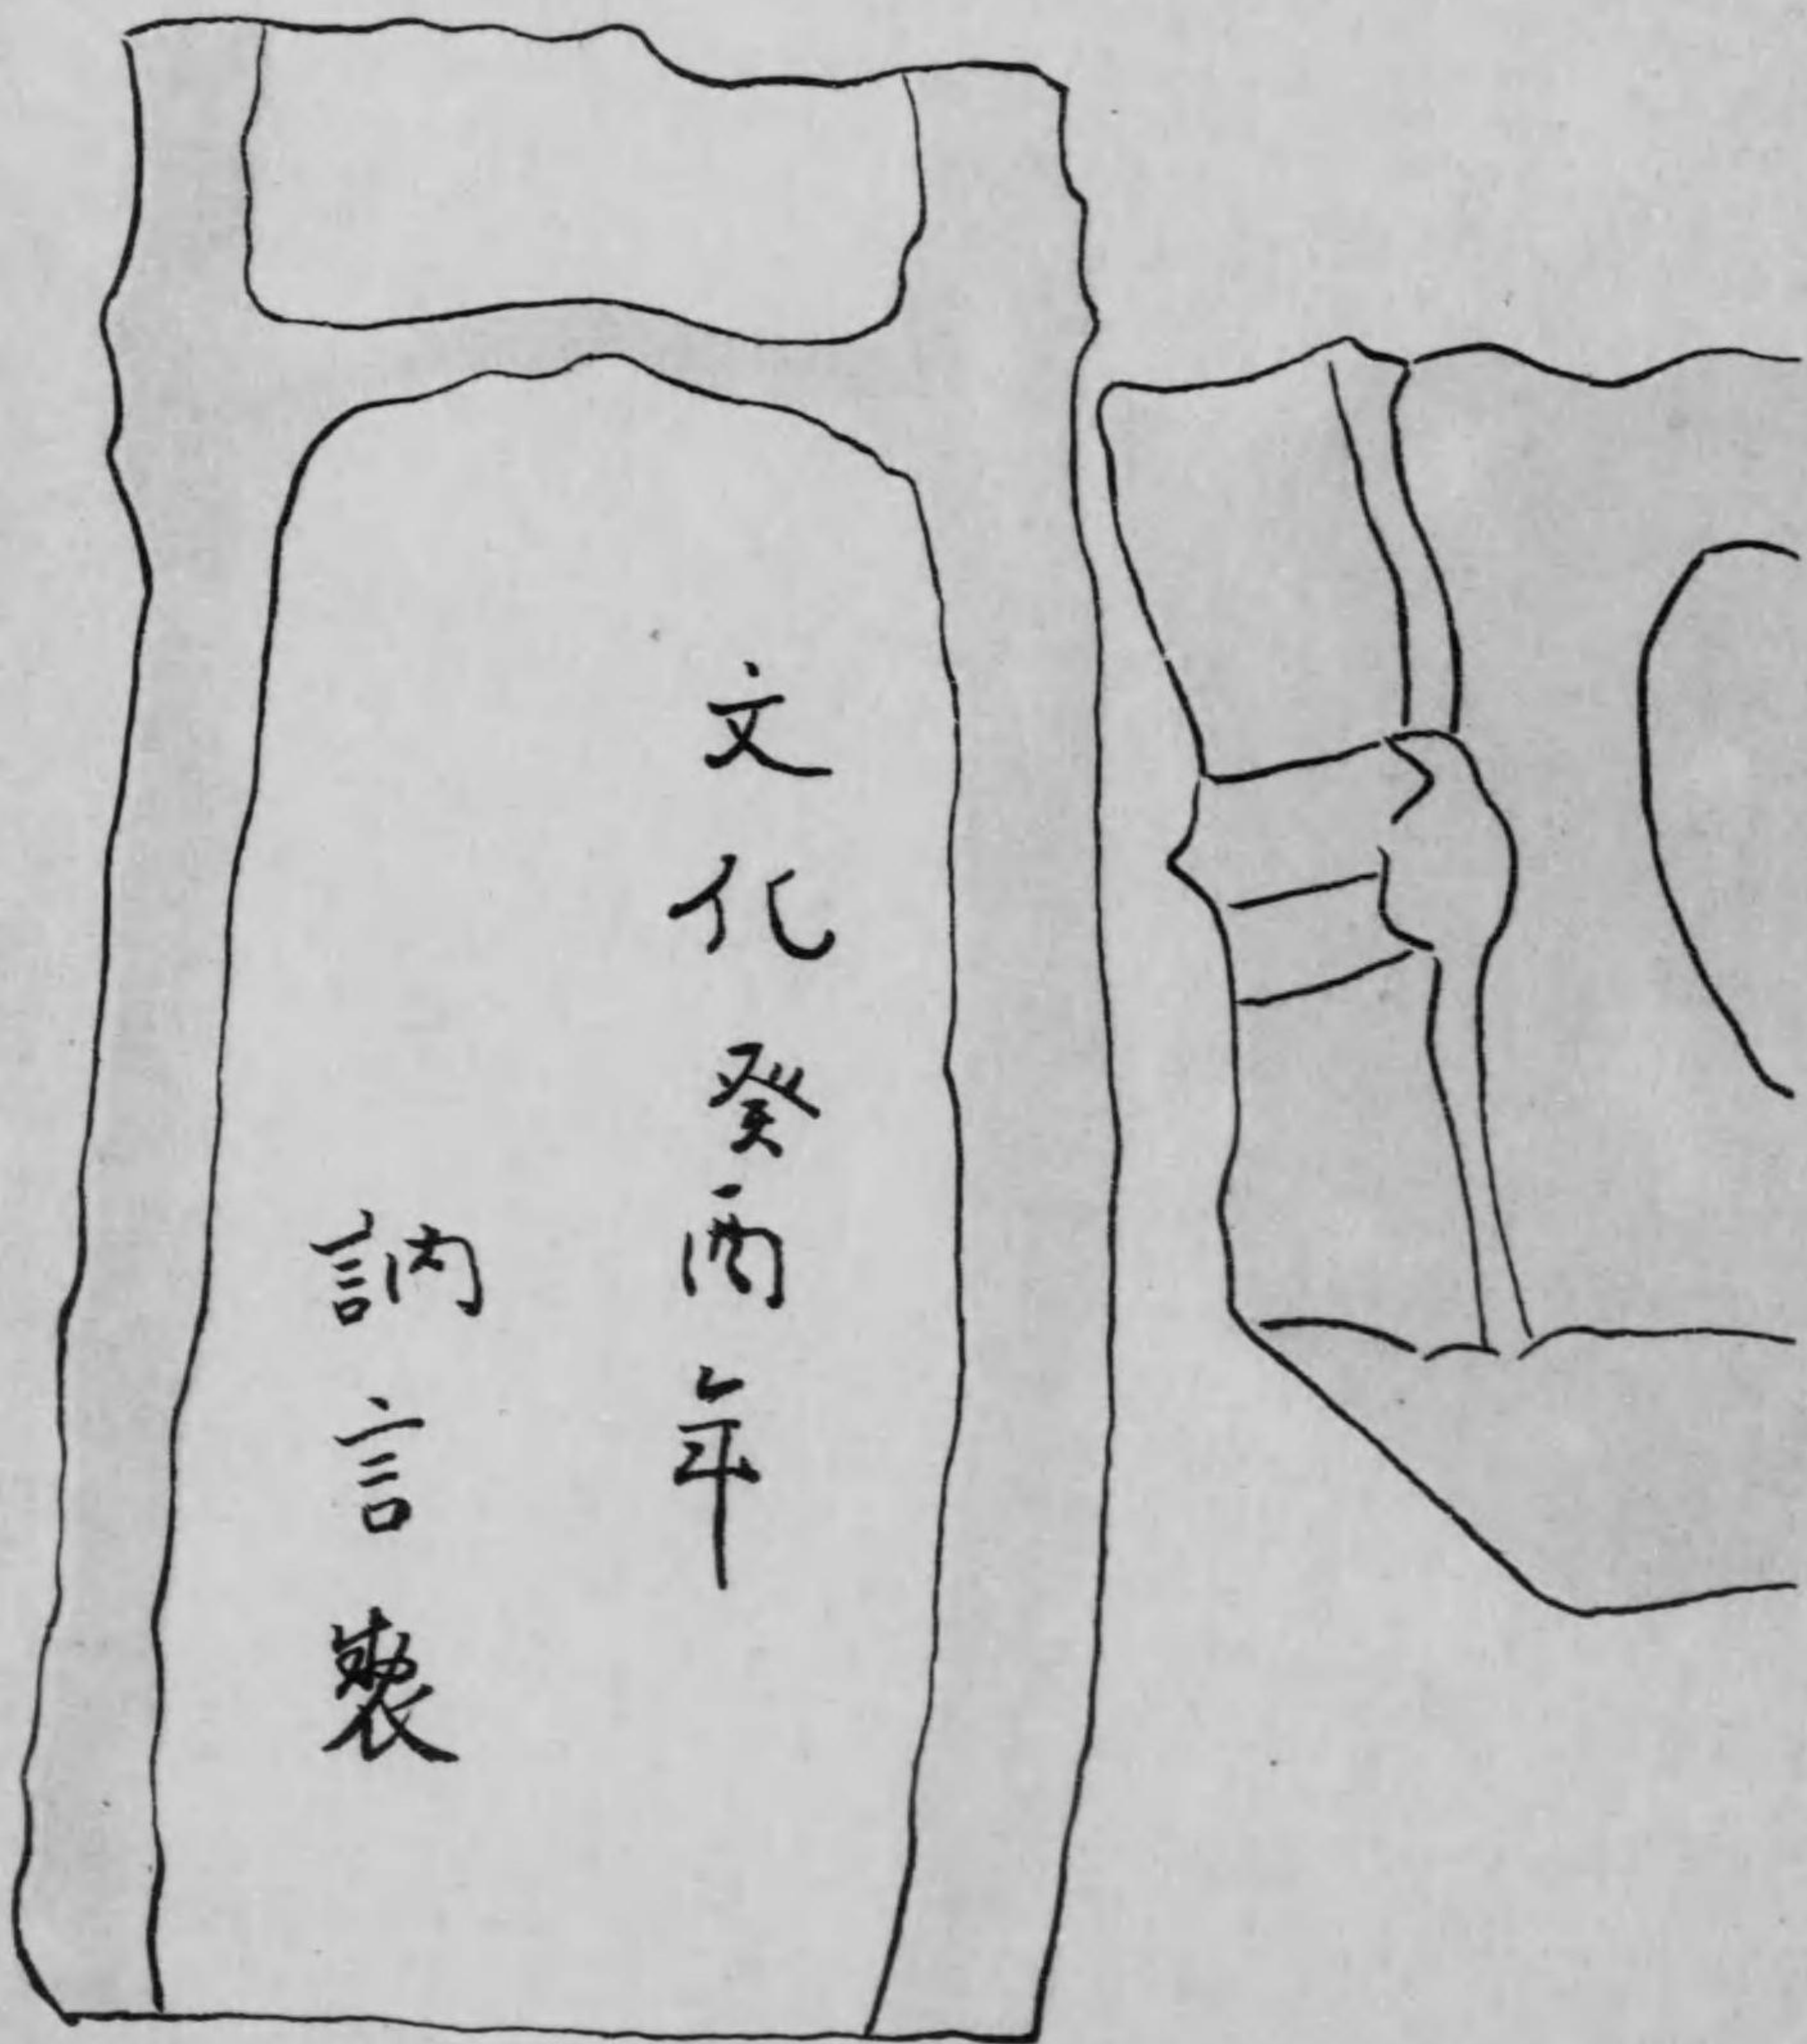 文化癸酉年
訥言製